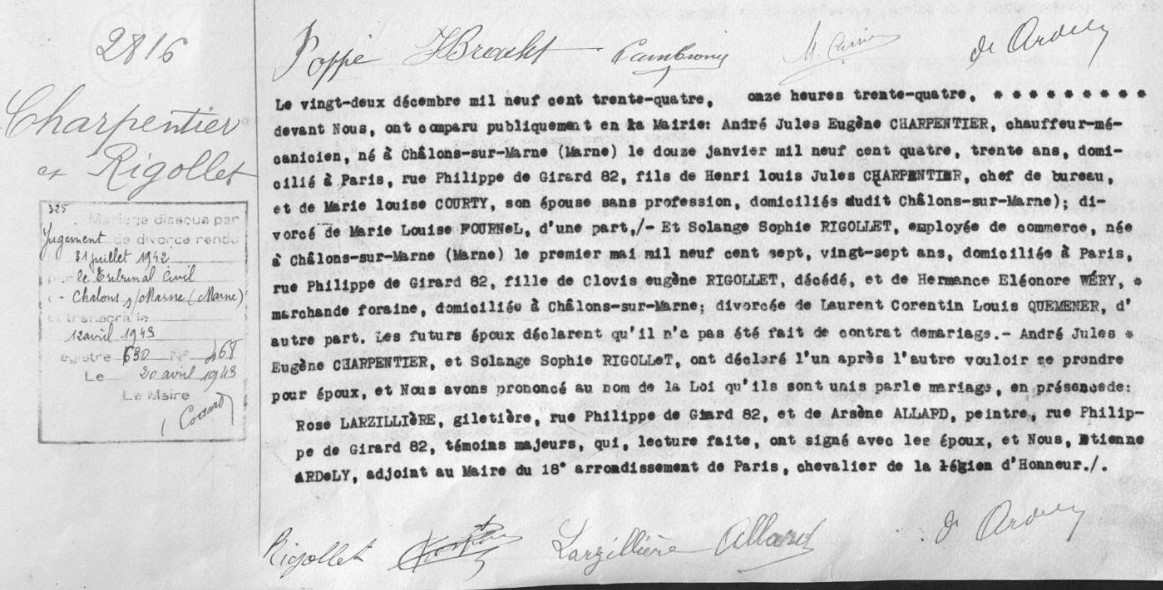 2816
Poppe HBroult Cambronne M. Carrier di Ardely
Charpentier
et Rigollet
Le vingt-deux décembre mil neuf cent trente-quatre, onze heures trente-quatre, * * * * * * * * *
devant Nous, ont comparu publiquement en la Mairie: André Jules Eugène CHARPENTIER, chauffeur-mé-
canicien, né à Châlons-sur-Marne (Marne) le douze janvier mil neuf cent quatre, trente ans, domi-
cilié à Paris, rue Philippe de Girard 82, fils de Henri louis Jules CHARPENTIER, chef de bureau,
et de Marie louise COURTY, son épouse sans profession, domiciliés audit Châlons-sur-Marne); di-
vorcé de Marie Louise FOURNeL, d'une part,/- Et Solange Sophie RIGOLLET, employée de commerce, née
à Châlons-sur-Marne (Marne) le premier mai mil neuf cent sept, vingt-sept ans, domiciliée à Paris,
rue Philippe de Girard 82, fille de Clovis eugène RIGOLLET, décédé, et de Hermance Eléonore WÉRY, *
marchande foraine, domiciliée à Châlons-sur-Marne; divorcée de Laurent Corentin Louis QUEMENER, d'
autre part. Les futurs époux déclarent qu'il n'a pas été fait de contrat demariage.- André Jules *
Eugène CHARPENTIER, et Solange Sophie RIGOLLeT, ont déclaré l'un après l'autre vouloir se prendre
pour époux, et Nous avons prononcé au nom de la Loi qu'ils sont unis parle mariage, en présencede:
Rose LARZILLIèRE, giletière, rue Philippe de Girard 82, et de Arsène ALLARD, peintre, rue Philip-
pe de Girard 82, témoins majeurs, qui, lecture faite, ont signé avec les époux, et Nous, Etienne
ARDeLY, adjoint au Maire du 18° arrondissement de Paris, chevalier de la légion d'Honneur./.
325
Mariage dissous par
Jugement de divorce rendu
31 juillet 1942
par le Tribunal Civil
Chalons s/Marne (Marne)
et transcrit le
12 avril 1943
egistre 630 N° 468
Le 20 avril 1943
Le Maire
Rigollet Larzillière Allard di Ardely